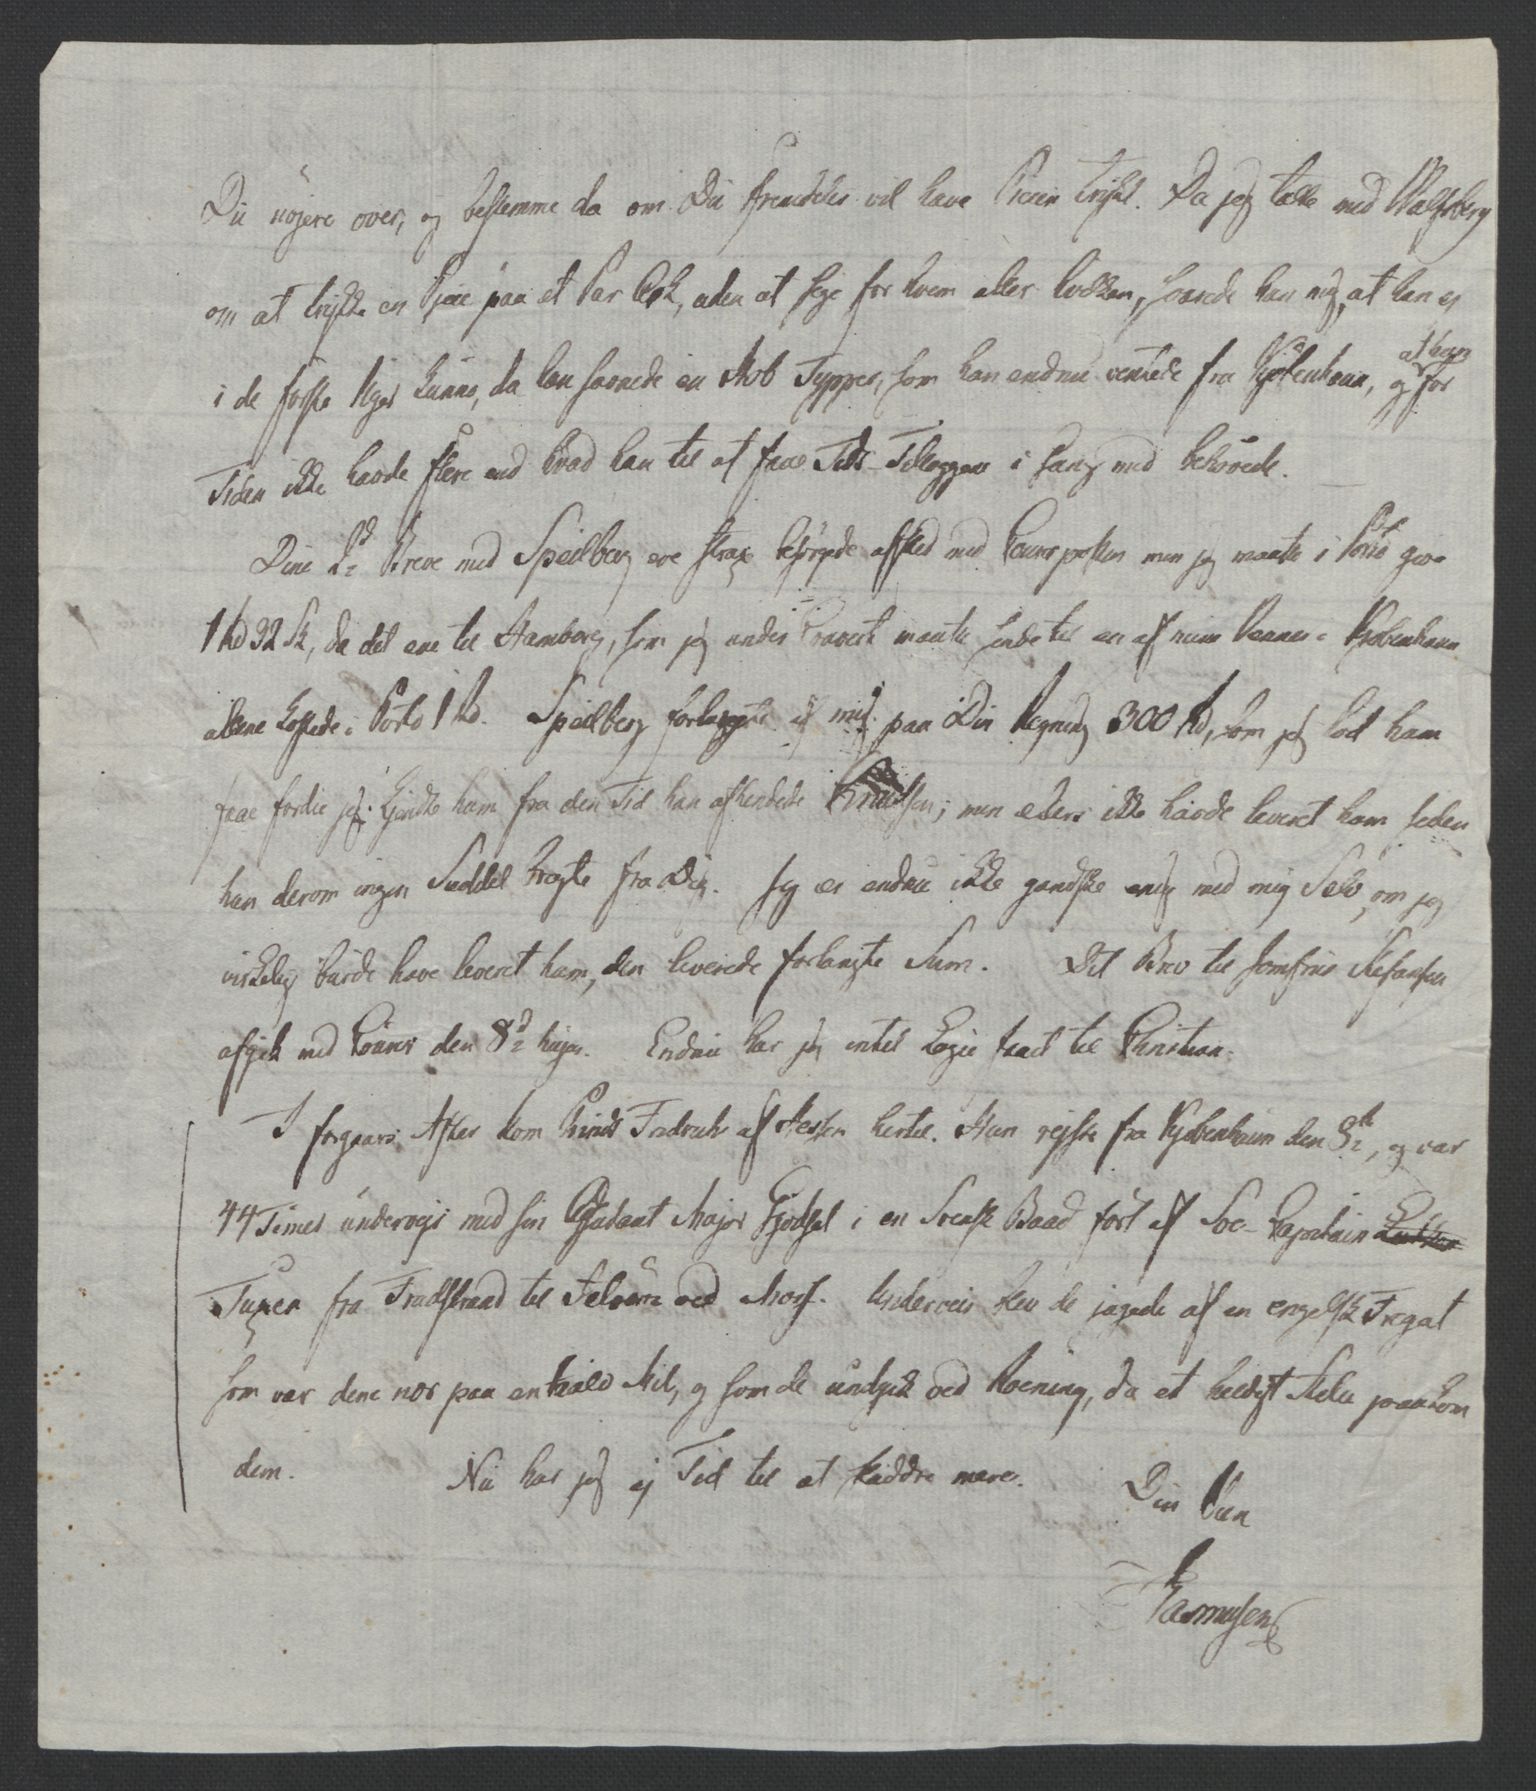 Du nöjere over, og bestemme da om Du fremdeles vil have Piecen trykt. Da jeg talte med Wulfsberg
om at trykke en Piece paa et Par Ark, uden at sige for hvem eller hvilken, svarede han mig, at han ej
i de første Uger kunne, da han savnede en Hob Typper, som han endnu ventede fra Kjöbenhavn, og at han for
Tiden ikke havde flere end hvad han til at faae Tids-Tillæggene i Gang med behövede.
Dine 2de Breve med Spidberg ere strax besörgede afsted med Courposten men jeg maatte i Porto give
1 Rd 32 Sk, da det ene til Hamborg, som jeg under Couvert maatte sende til en af mine Venner i Kjöbenhavn
allene kostede i Porto 1 Rd. Spidberg forlangte af mig paa Din Regning 300 Rd, som jeg lod ham
faae fordie jeg kjendte ham fra den Tid han afhendede Knudsen; men ellers ikke havde leveret ham siden
han derom ingen Seddel bragte fra Dig. Jeg er endnu ikke gandske enig med mig Selv, om jeg
virkelig burde have leveret ham, den leverede forlangte Sum. Dit Brev til Jomfrue Stefansen
afgik med Couren den 8de hujus. Endnu har jeg intet Logie faaet til Christian.
I forgaars Aftes kom Prinds Fredrich af Hessen hertil. Han rejste fra Kjöbenhavn den 8de, og var
44 Timer underveis med sin Adjudant Major Gjödsel i en Svensk Baad fört af Soe-Capitain
Tuxen fra Fradstrand til Jelöen ved Moss. Underveis blev de jagede af en engelsk Fregat
som var dem nær paa en halv Mil, og som de undgik ved Roening, da et heldigt Stille paakom
dem. Nu har jeg ej Tid til at sladdre mere.
Din Ven
Rasmusen